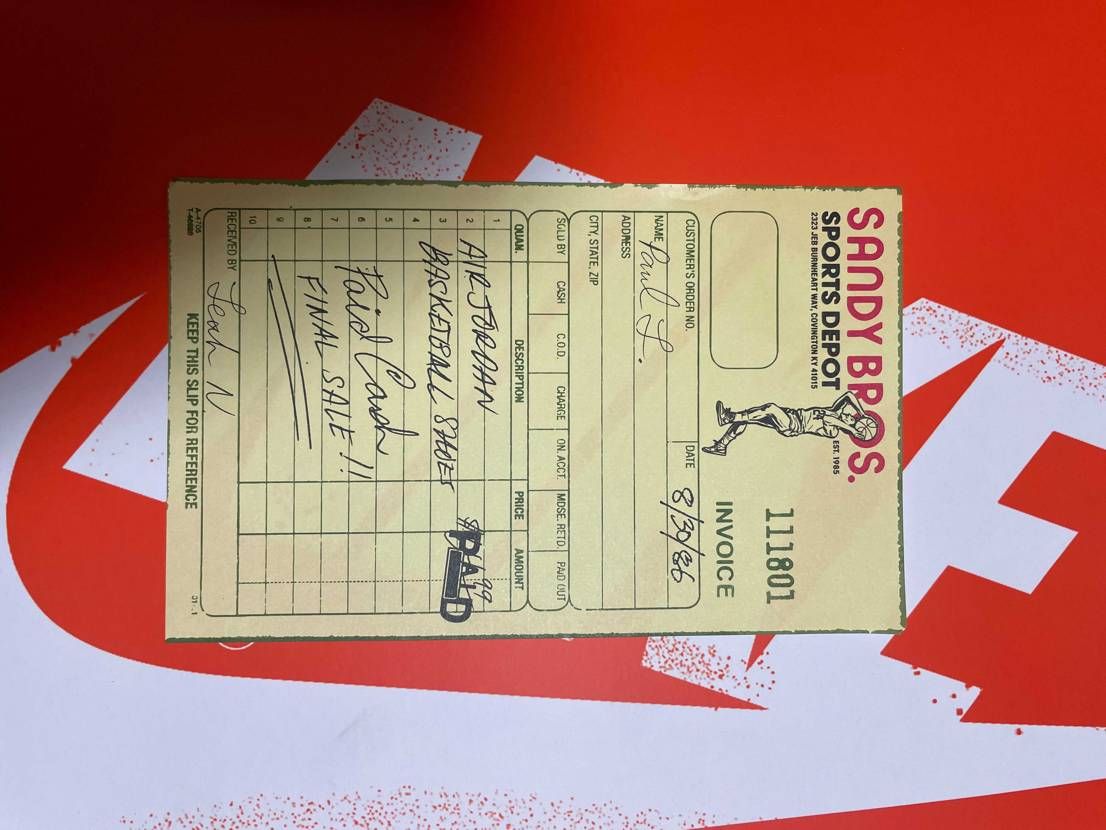 SANDY BROS.
SPORTS DEPOT
EST. 1985
2323 JEB BURNHEART WAY, COVINGTON KY 41015
111801
INVOICE
CUSTOMER'S ORDER NO. DATE 8/30/86
NAME Paul L.
ADDRESS
CITY, STATE, ZIP
SOLD BY CASH C.O.D. CHARGE ON. ACCT. MDSE. RETD. PAID OUT
QUAN. DESCRIPTION PRICE AMOUNT
1
2 AIR JORDAN
PAID
3 BASKETBALL SHOES
4
5 Paid Cash
6
7 FINAL SALE!!
8
9
10
RECEIVED BY Leah N
A-4705
KEEP THIS SLIP FOR REFERENCE